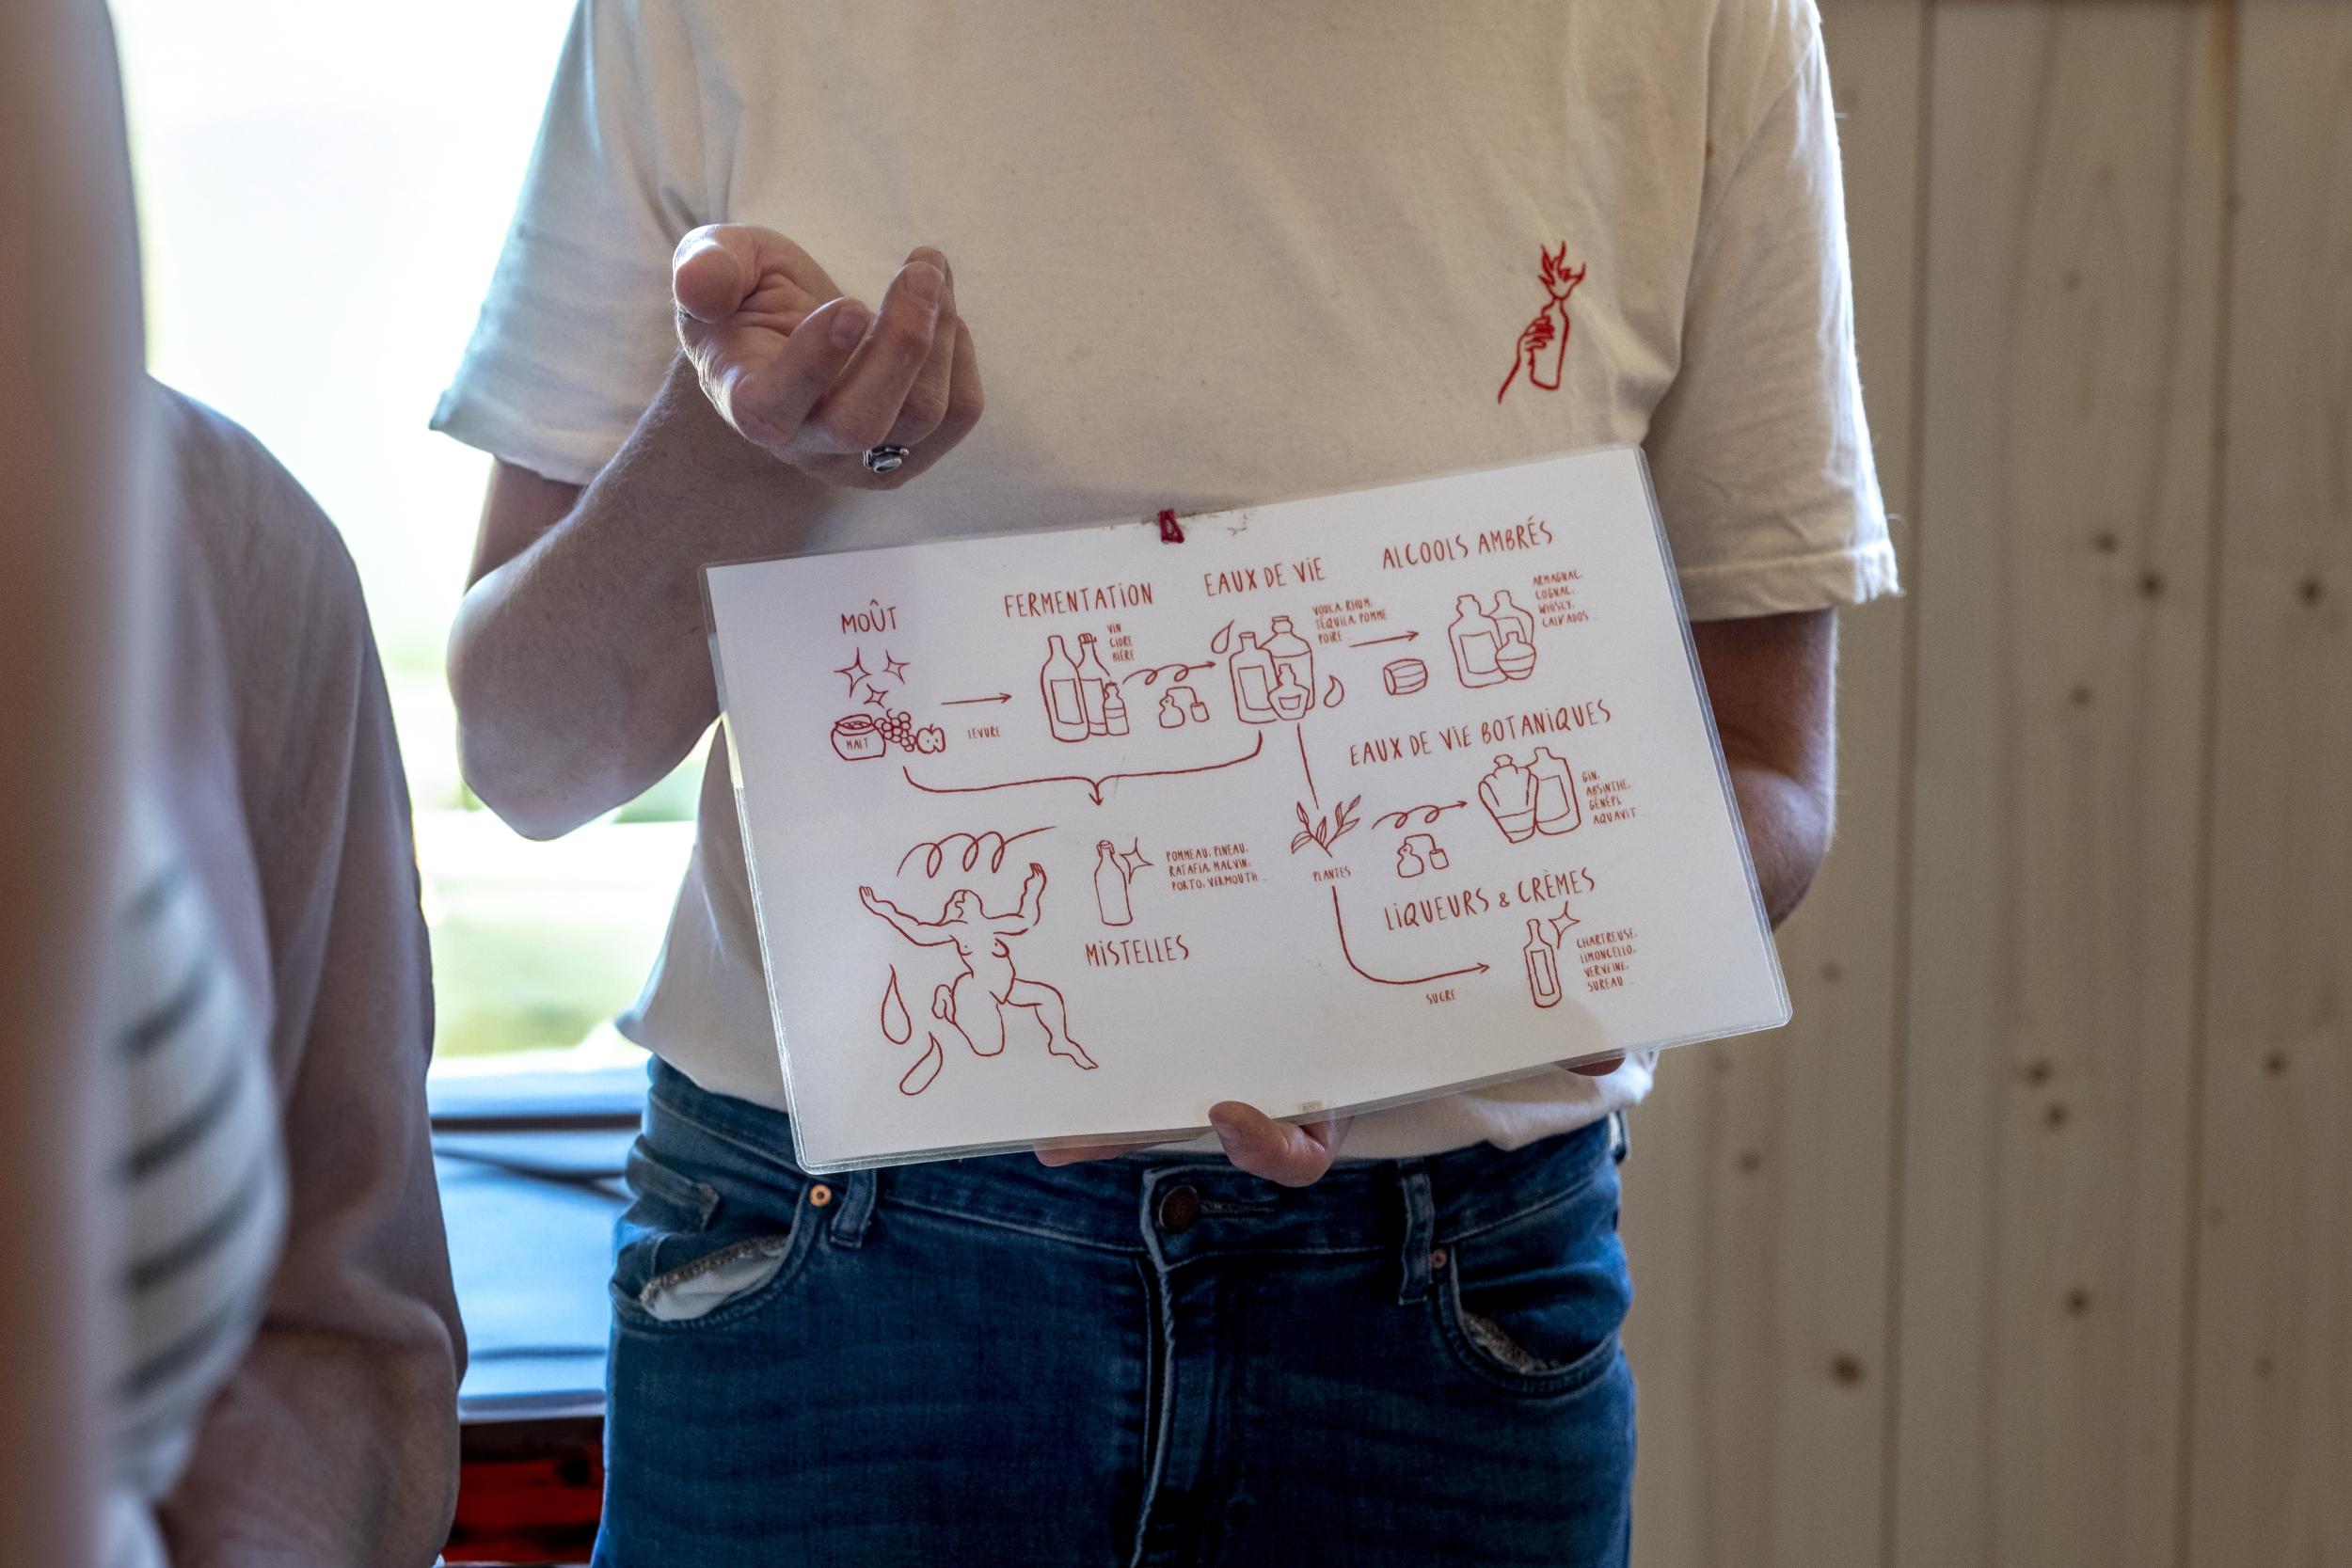 MOÛT
MALT
LEVURE
FERMENTATION
VIN
CIDRE
BIÈRE
EAUX DE VIE
VODKA, RHUM,
TÉQUILA, POMME
POIRE ...
ALCOOLS AMBRÉS
ARMAGNAC,
COGNAC,
WHISKY,
CALVADOS ...
EAUX DE VIE BOTANIQUES
GIN,
ABSINTHE,
GÉNÉPI,
AQUAVIT ...
PLANTES
POMMEAU, PINEAU,
RATAFIA, MACVIN,
PORTO, VERMOUTH ...
MISTELLES
LIQUEURS & CRÈMES
CHARTREUSE,
LIMONCELLO,
VERVEINE,
SUREAU ...
SUCRE